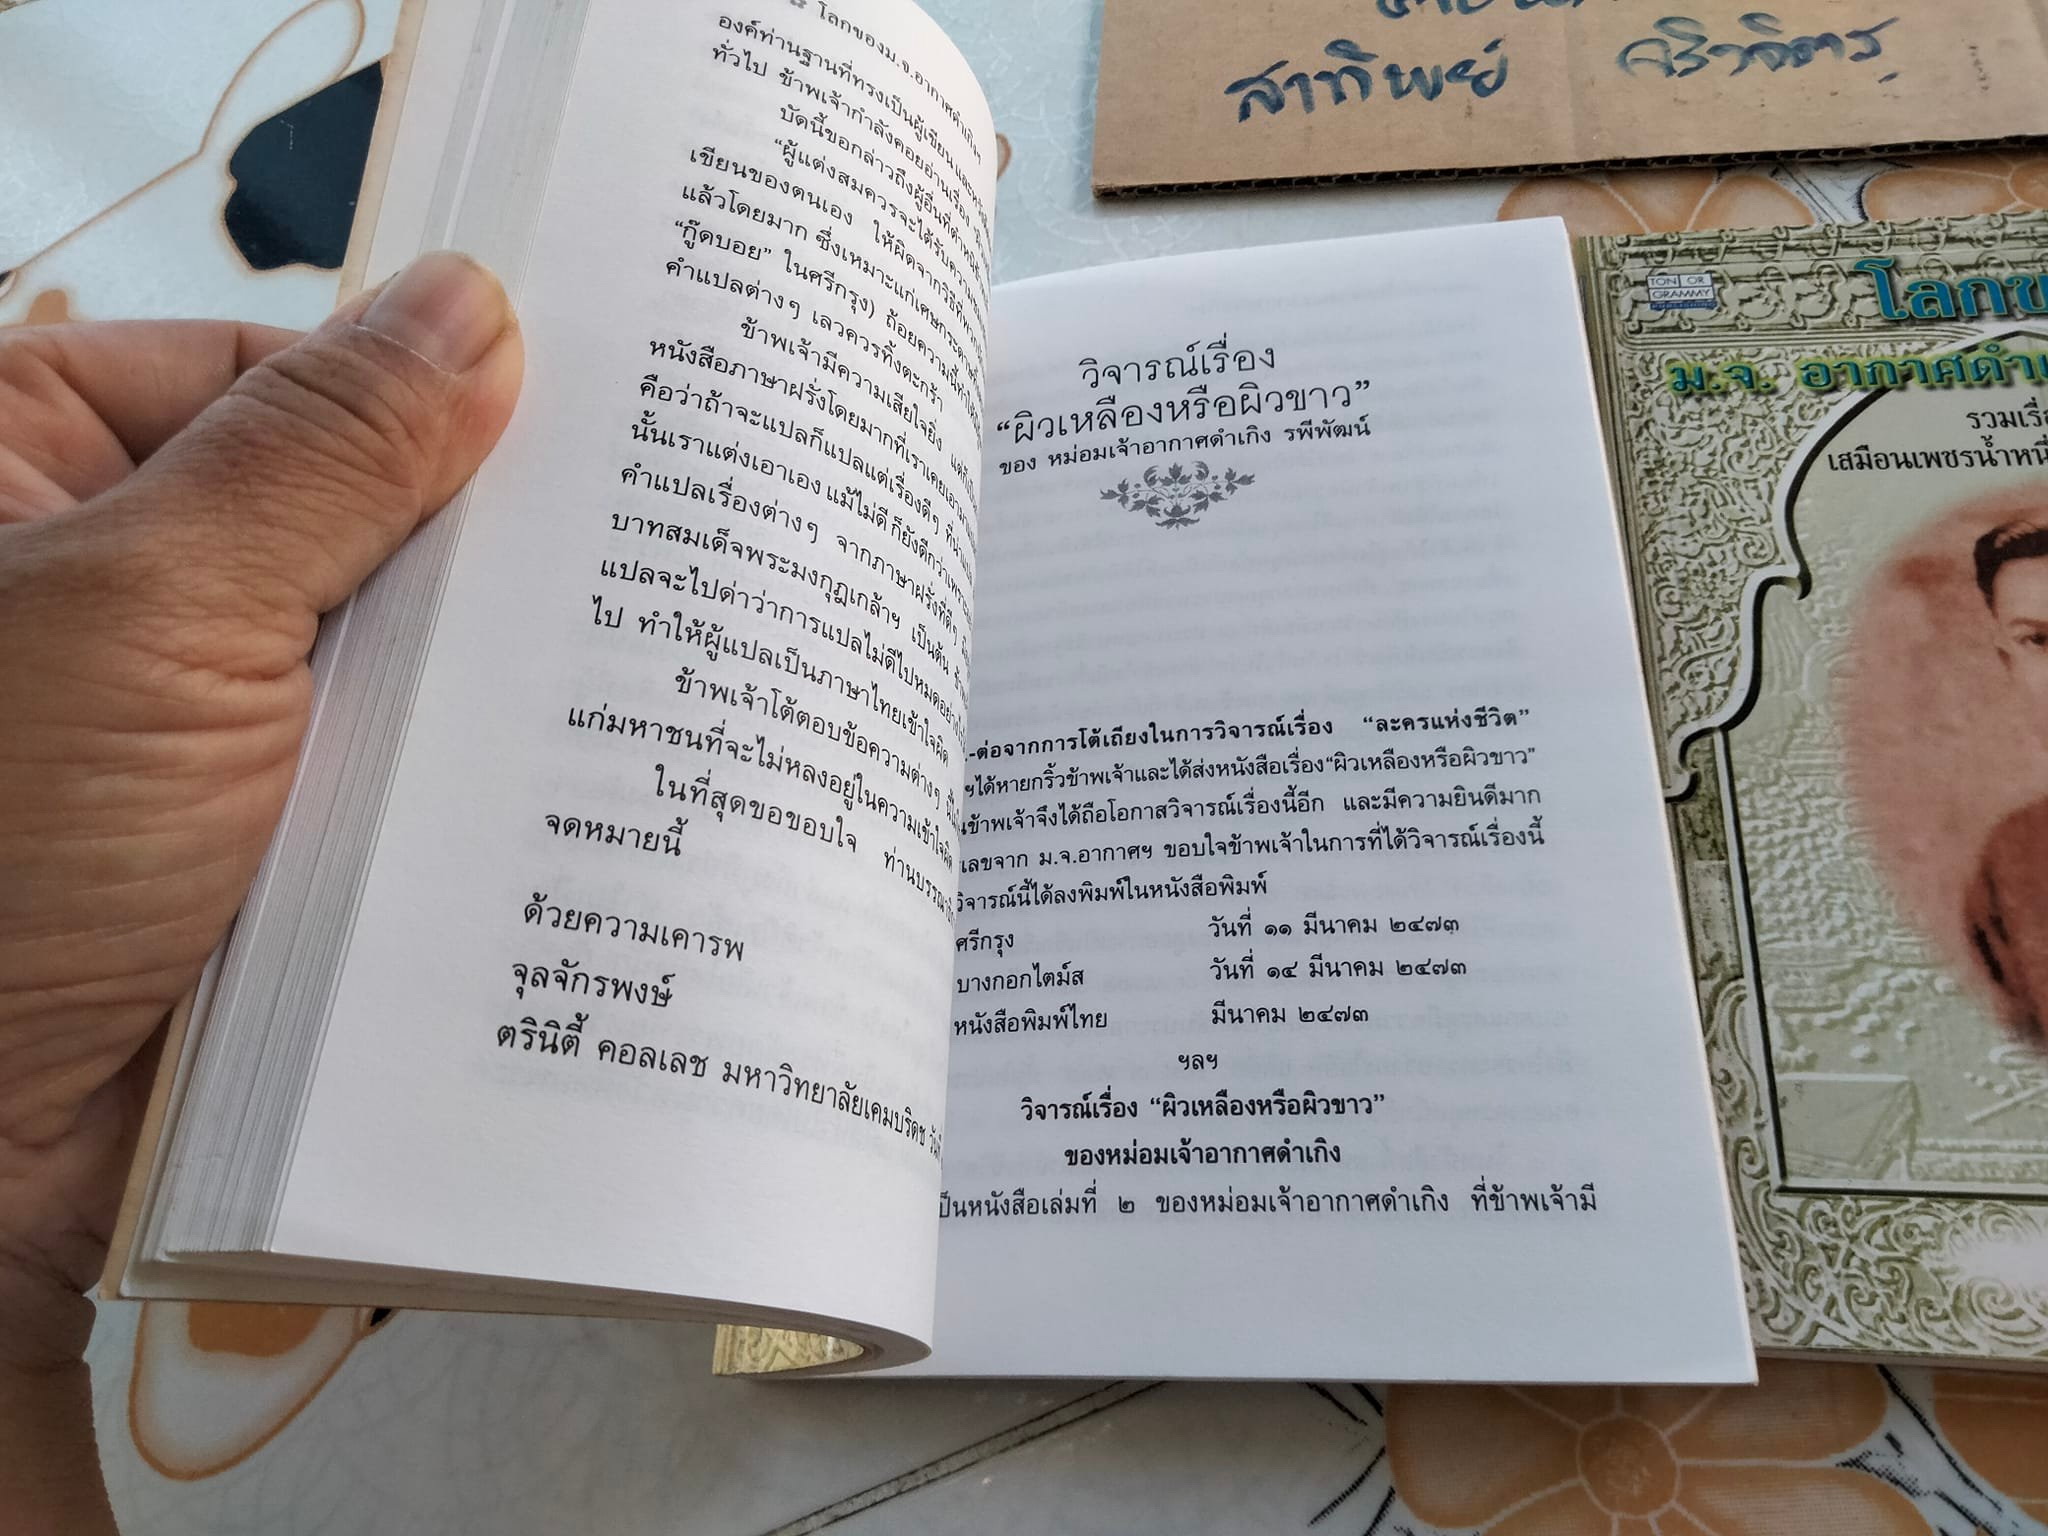 โลกของม.จ.อากาศดำเกิงฯ
องค์ท่านฐานที่ทรงเป็นผู้เขียน
ทั่วไป ข้าพเจ้ากำลังคอยอ่านเรื่อง
บัดนี้ขอกล่าวถึงผู้อื่นที่ตำหนิ
“ผู้แต่งสมควรจะได้รับความ
เขียนของตนเอง ให้ผิดจากวิธีที่
แล้วโดยมาก ซึ่งเหมาะแก่เศษกระดาษ
“กู๊ดบอย” ในศรีกรุง) ถ้อยความนี้
คำแปลต่างๆ เลวควรทิ้งตะกร้า
ข้าพเจ้ามีความเสียใจยิ่ง
หนังสือภาษาฝรั่งโดยมากที่เราเคยเอามา
คือว่าถ้าจะแปลก็แปลแต่เรื่องดีๆ ที่น่า
นั้นเราแต่งเอาเอง แม้ไม่ดี ก็ยังดีกว่า
คำแปลเรื่องต่างๆ จากภาษาฝรั่งที่ดีๆ
บาทสมเด็จพระมงกุฎเกล้าฯ เป็นต้น
แปลจะไปด่าว่าการแปลไม่ดีไปหมด
ไป ทำให้ผู้แปลเป็นภาษาไทยเข้าใจผิด
ข้าพเจ้าโต้ตอบข้อความต่างๆ
แก่มหาชนที่จะไม่หลงอยู่ในความเข้าใจผิด
ในที่สุดขอขอบใจ
จดหมายนี้
ด้วยความเคารพ
จุลจักรพงษ์
ตรินิตี้ คอลเลช มหาวิทยาลัยเคมบริดช
วิจารณ์เรื่อง
“ผิวเหลืองหรือผิวขาว”
ของ หม่อมเจ้าอากาศดำเกิง รพีพัฒน์
-ต่อจากการโต้เถียงในการวิจารณ์เรื่อง “ละครแห่งชีวิต”
ฯได้หายกริ้วข้าพเจ้าและได้ส่งหนังสือเรื่อง“ผิวเหลืองหรือผิวขาว”
ข้าพเจ้าจึงได้ถือโอกาสวิจารณ์เรื่องนี้อีก และมีความยินดีมาก
เลขจาก ม.จ.อากาศฯ ขอบใจข้าพเจ้าในการที่ได้วิจารณ์เรื่องนี้
วิจารณ์นี้ได้ลงพิมพ์ในหนังสือพิมพ์
ศรีกรุง วันที่ ๑๑ มีนาคม ๒๔๗๓
บางกอกไตม์ส วันที่ ๑๔ มีนาคม ๒๔๗๓
หนังสือพิมพ์ไทย มีนาคม ๒๔๗๓
ฯลฯ
วิจารณ์เรื่อง “ผิวเหลืองหรือผิวขาว”
ของหม่อมเจ้าอากาศดำเกิง
ป็นหนังสือเล่มที่ ๒ ของหม่อมเจ้าอากาศดำเกิง ที่ข้าพเจ้ามี
สาทิพย์
TON OR
GRAMMY
โลกข
ม.จ. อากาศดำเ
รวมเรื่อ
เสมือนเพชรน้ำหนึ่